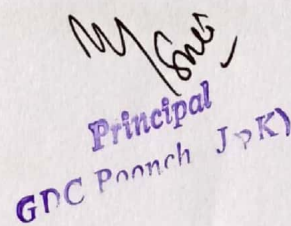 Principal
GDC Poonch J&K)